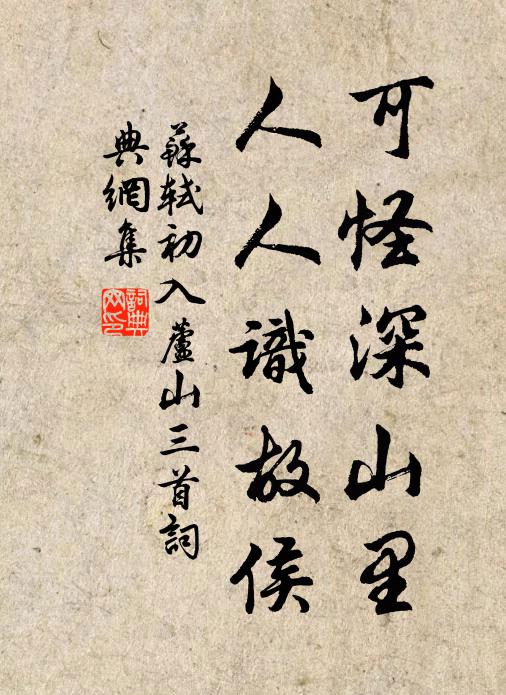 可怪深山里
人人識故侯
蘇軾初入蘆山三首詞
典網集
詞典
网印